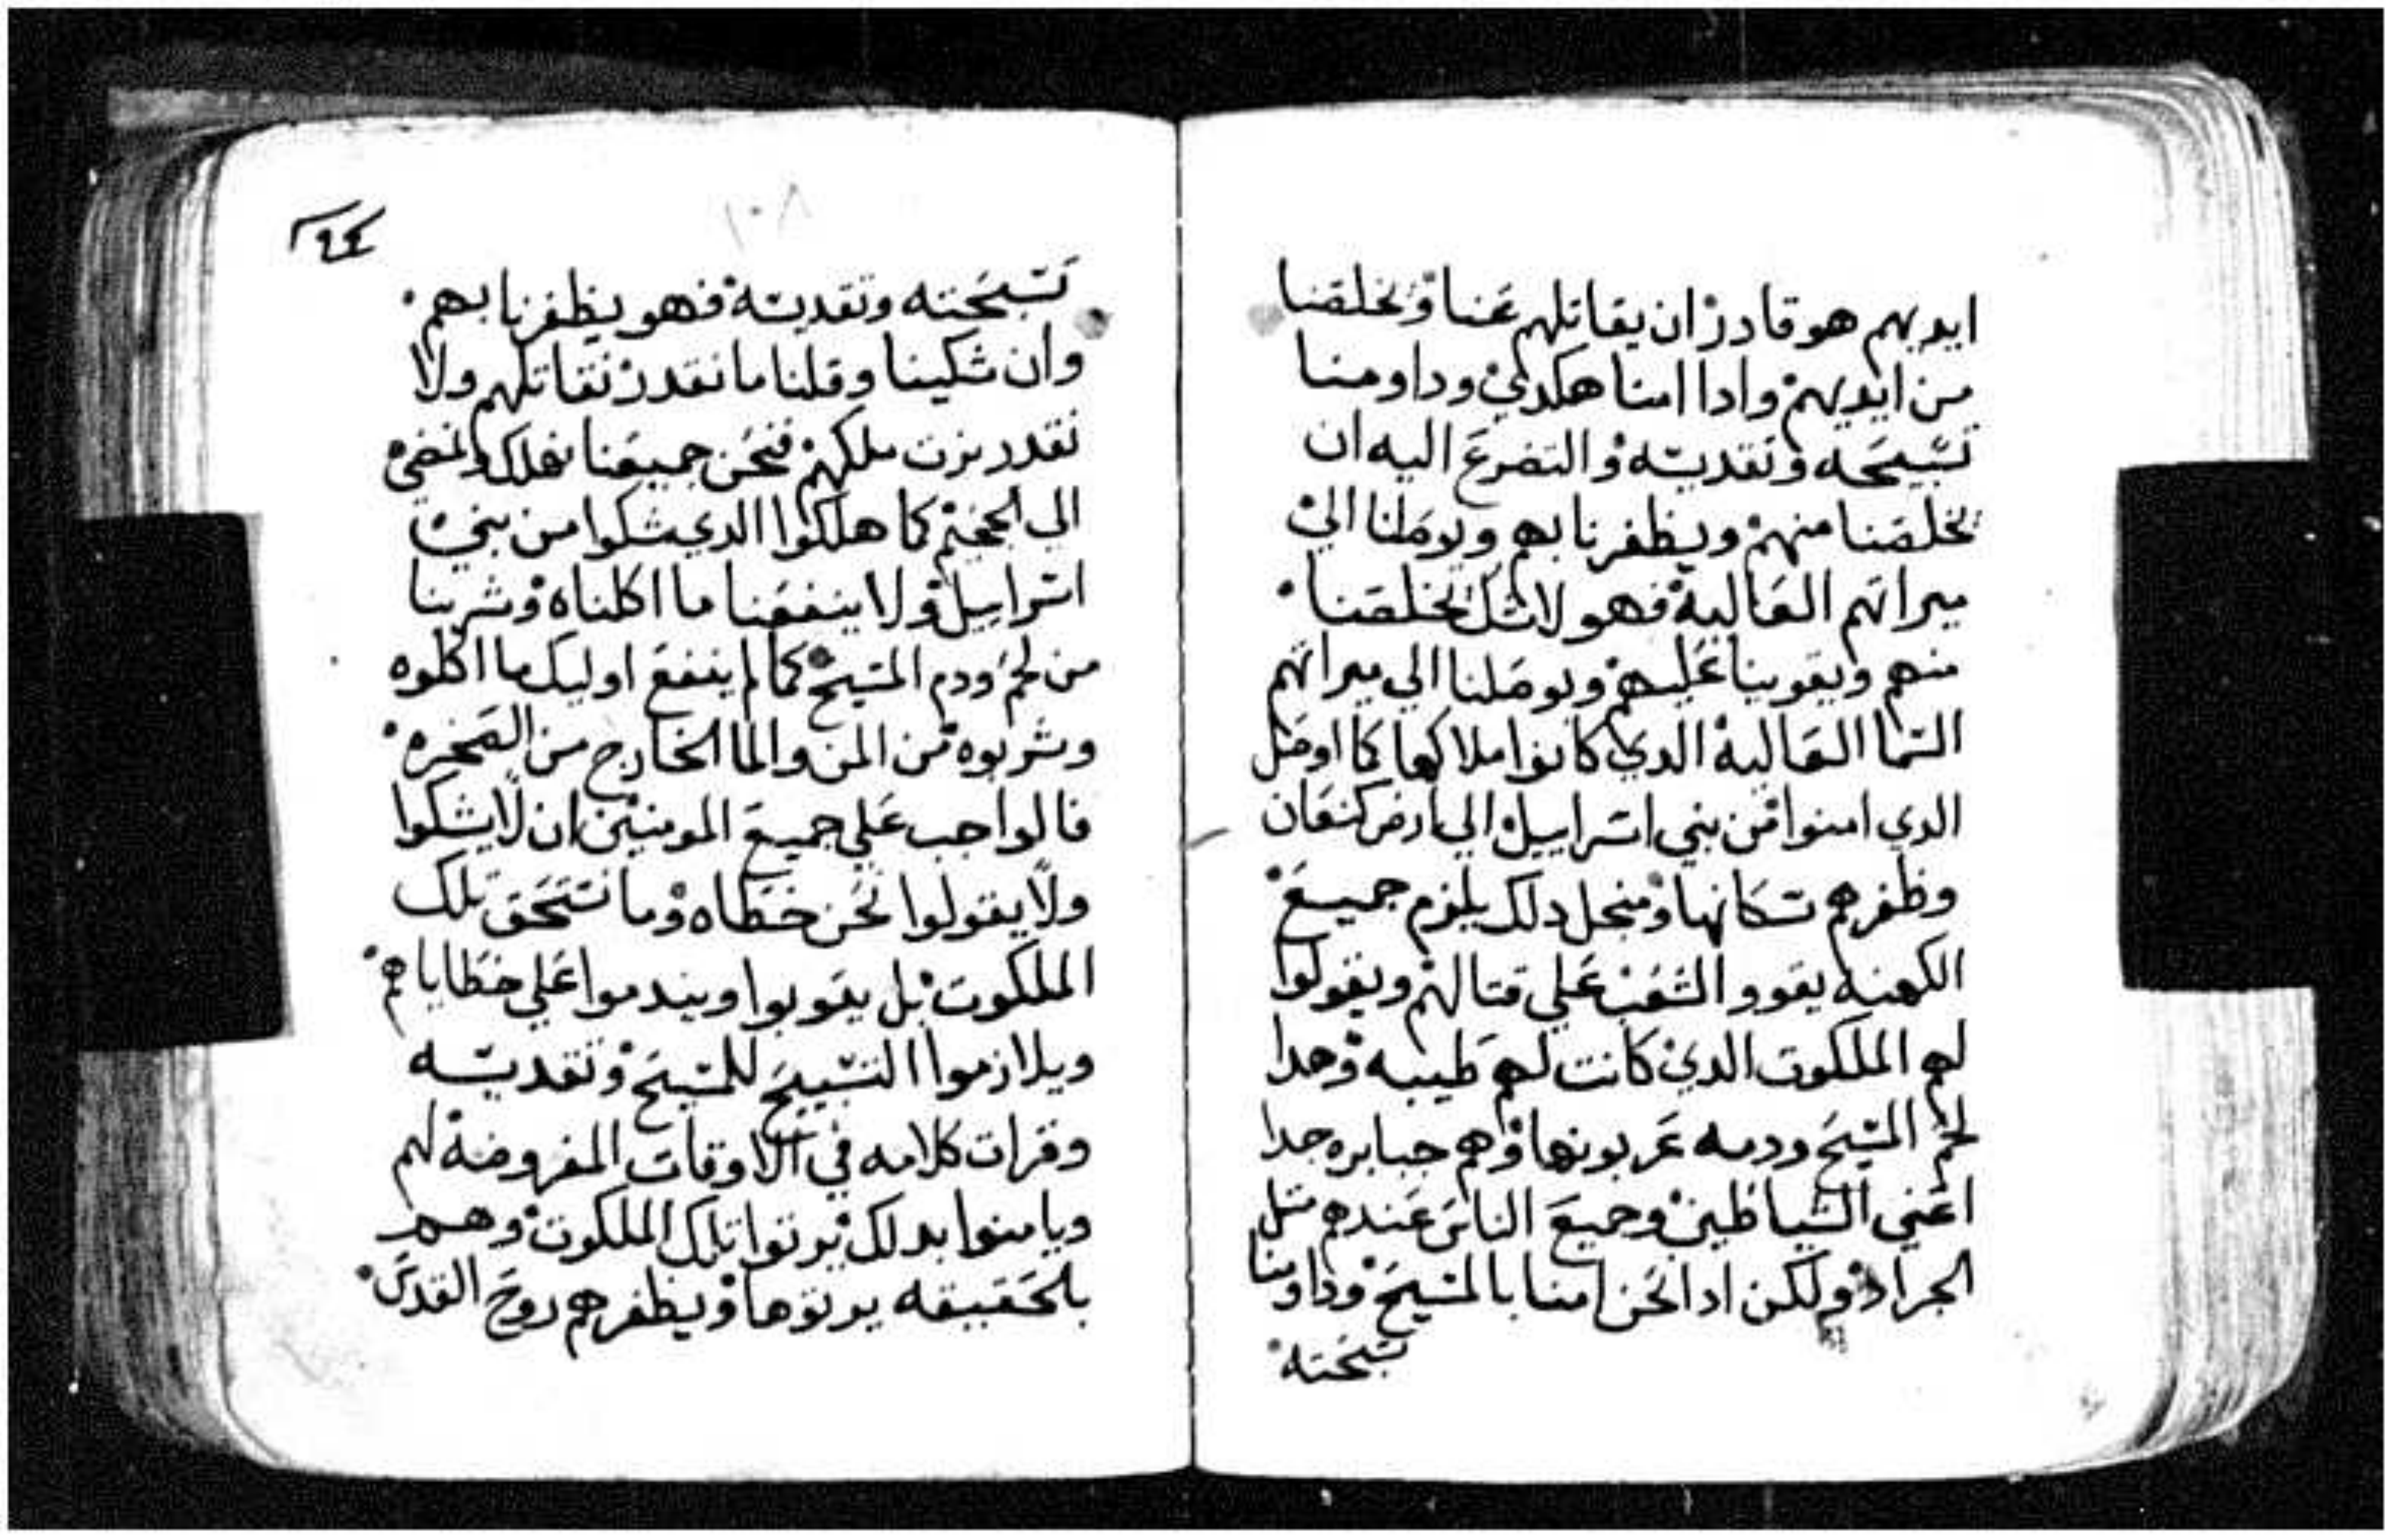 ايديهم هو قادر ان يقاتلهم عنا ويخلصنا
من ايديهم وادا امنا هكدي وداومنا
تسبيحه وتقديسه والتضرع اليه ان
يخلصنا منهم ويظفرنا بهم ويوصلنا الي
ميراتهم العالية فهو لا شك يخلصنا
منهم ويقوينا عليهم ويوصلنا الي ميراتهم
السما العالية الدي كانوا ملاكها كما اوصل
الدي امنوا من بني اسراييل الي ارض كنعان
وظفرهم بسكانها ومنجل دلك يلزم جميع
الكهنه يقووا الشعب علي قتالهم ويقولوا
لهم الملكوت الدي كانت لهم طيبه وهدا
لحم المسيح ودمه عربونها وهم جبابره جدا
اعني الشياطين وجميع الناس عندهم متل
الجراد ولكن ادا نحن امنا بالمسيح وداومنا
تسبحته
١٠٨
تسبحته وتقديسه فهو يظفرنا بهم
وان شكينا وقلنا ما نقدر نقاتلهم ولا
نقدر نرت ملكهم فنحن جميعنا نهلك ونمضي
الي الجحيم كما هلكوا الدي شكوا من بني
اسراييل ولا ينفعنا ما اكلناه وشربنا
من لحم ودم المسيح كما لم ينفع اوليك ما اكلوه
وشربوه من المن والما الخارج من الصخره
فالواجب علي جميع المومنين ان لا يشكوا
ولا يقولوا نحن خطاه وما نستحق تلك
الملكوت بل يتوبوا ويندموا علي خطاياهم
ويلازموا التسبيح للمسيح وتقديسه
وقرات كلامه في الاوقات المفروضة لهم
ويامنوا بدلك يرتوا تلك الملكوت وهم
بالحقيقه يرتوها ويظفرهم روح القدس